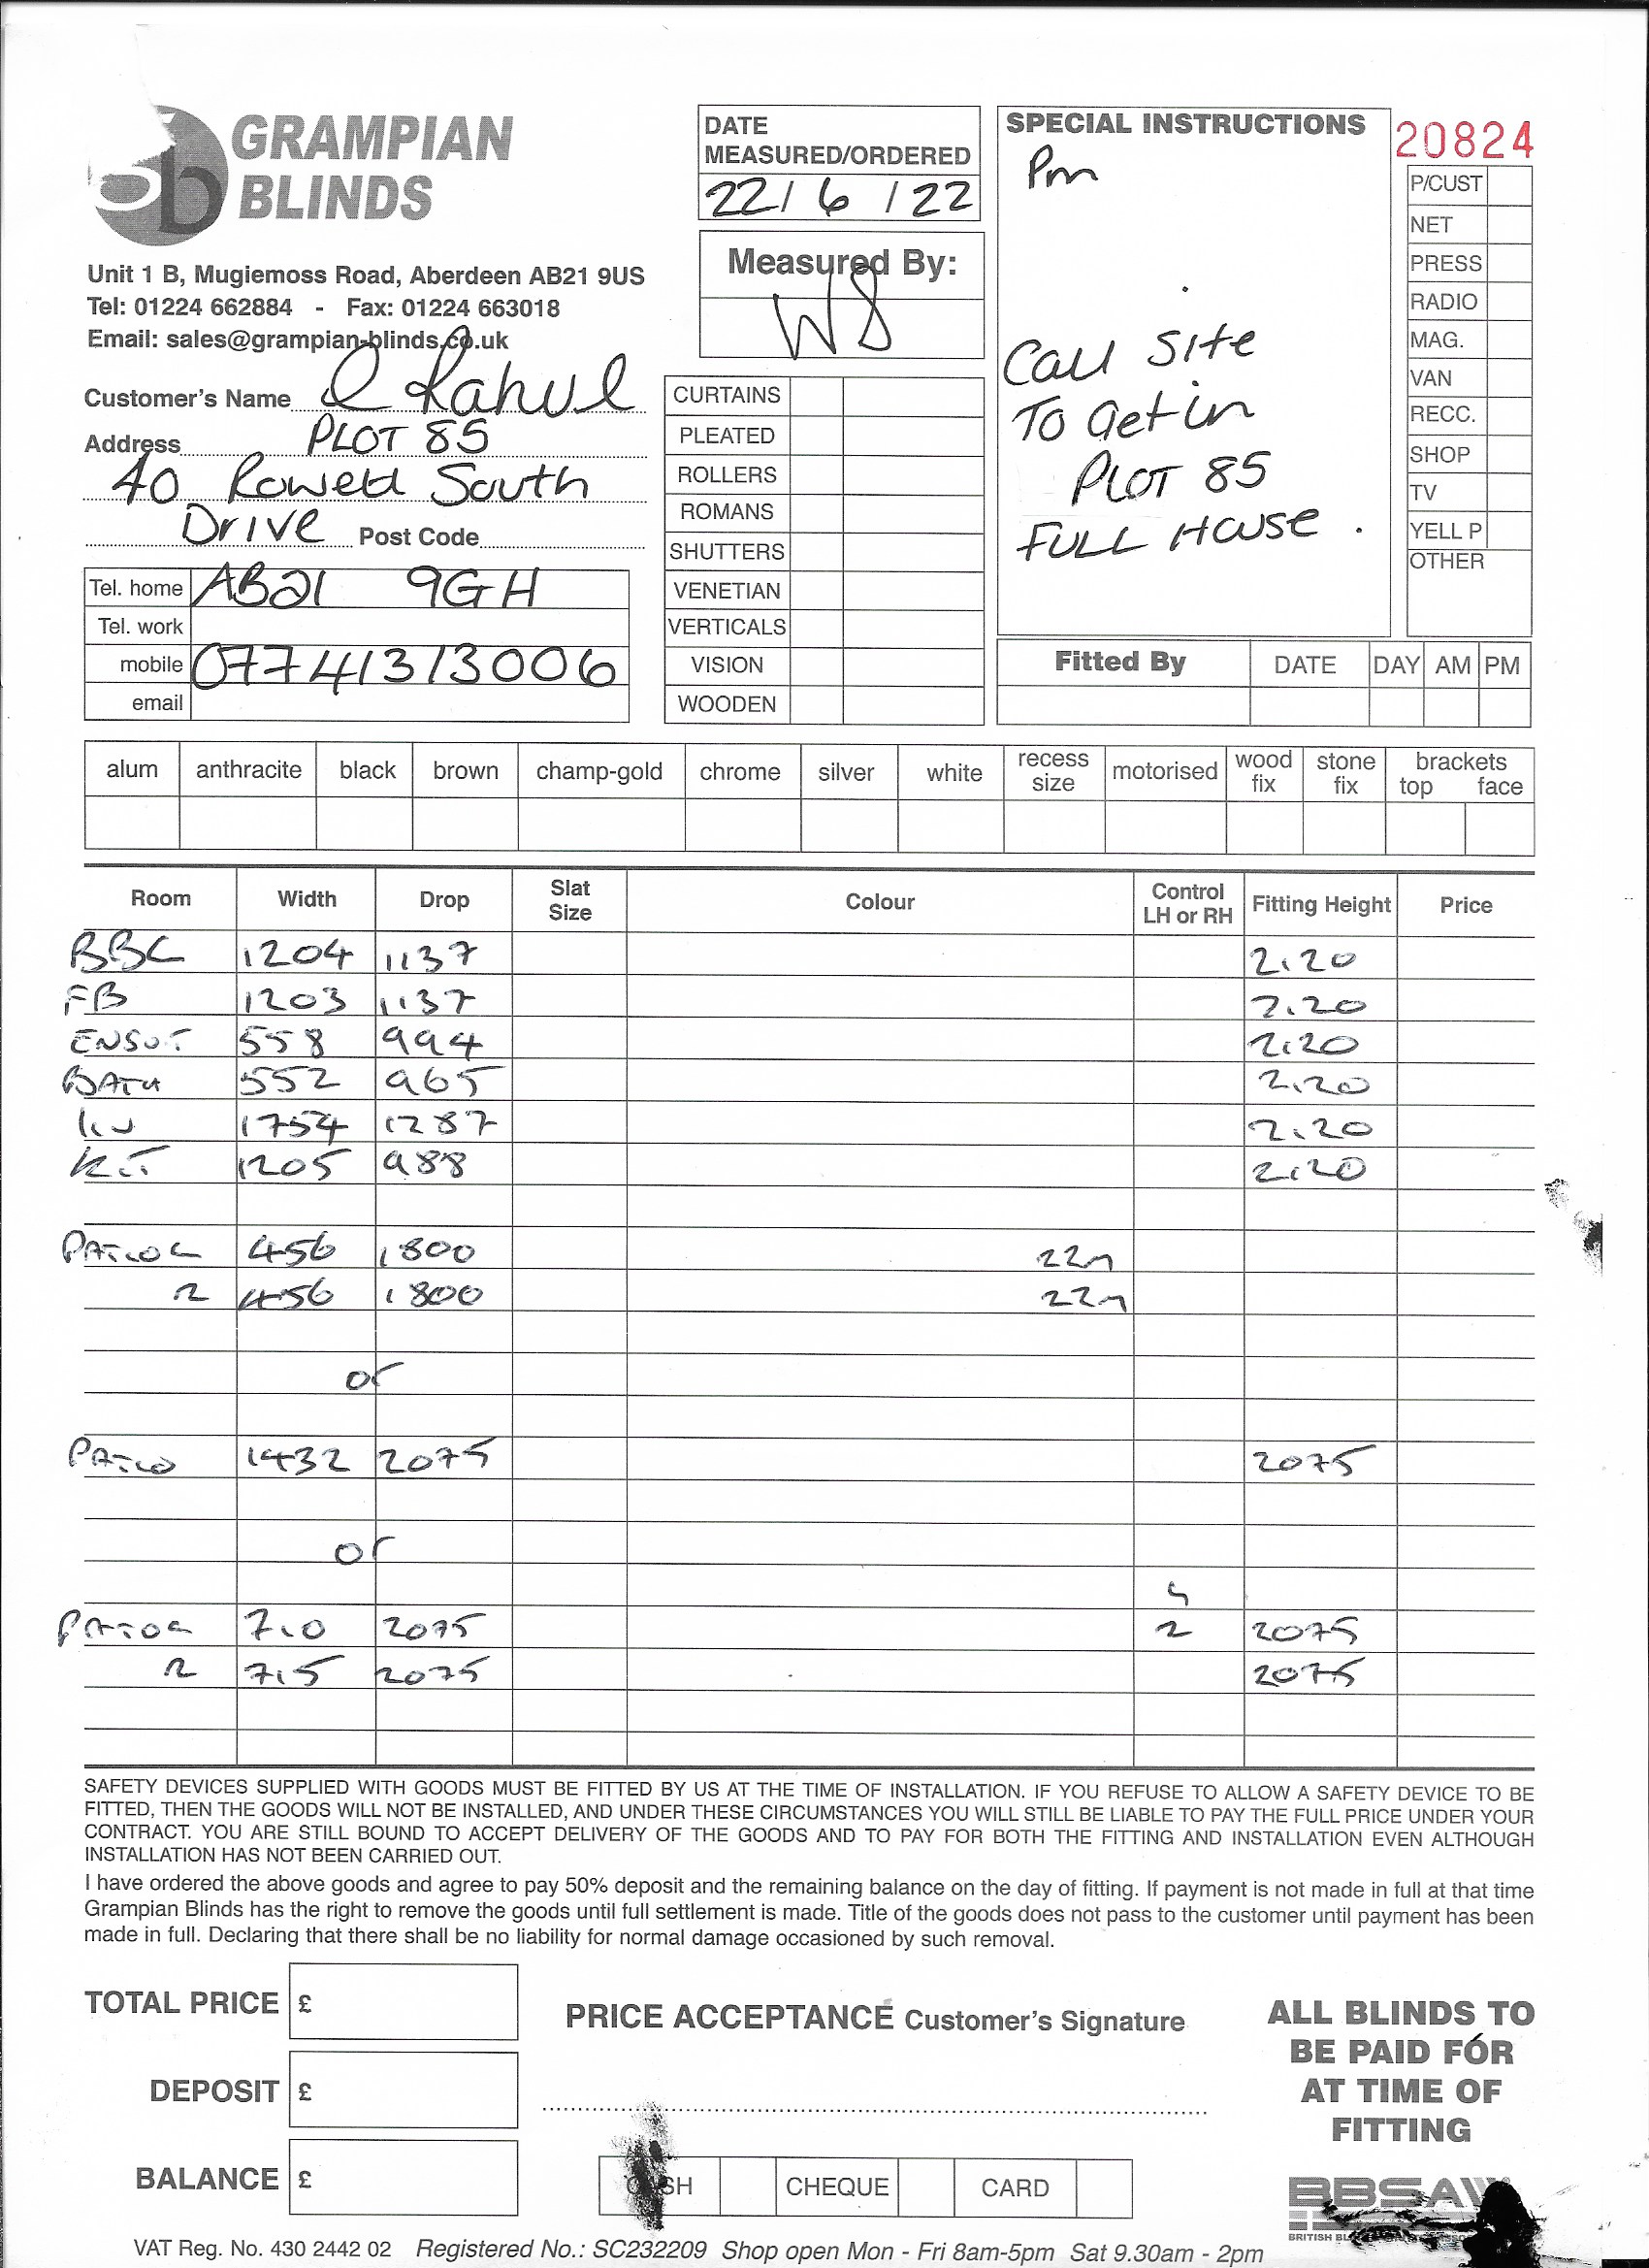 GRAMPIAN
BLINDS
Unit 1 B, Mugiemoss Road, Aberdeen AB21 9US
Tel: 01224 662884 - Fax: 01224 663018
Email: sales@grampian-blinds.co.uk
DATE
MEASURED/ORDERED
22/ 6 / 22
Measured By:
WS
SPECIAL INSTRUCTIONS
Pm
Call Site
To get in
PLOT 85
FULL HOUSE .
20824
P/CUST
NET
PRESS
RADIO
MAG.
VAN
RECC.
SHOP
TV
YELL P
OTHER
Customer's Name Rahul
Address PLOT 85
40 Rowett South
Drive Post Code
Tel. home AB21 9GH
Tel. work
mobile 07741313006
email
CURTAINS
PLEATED
ROLLERS
ROMANS
SHUTTERS
VENETIAN
VERTICALS
VISION
WOODEN
Fitted By DATE DAY AM PM
alum anthracite black brown champ-gold chrome silver white recess size motorised wood fix stone fix brackets top face
Room Width Drop Slat Size Colour Control LH or RH Fitting Height Price
BBC 1204 1137 2.20
FB 1203 1137 2.20
ENSUT 558 994 2.20
BATH 552 965 2.20
1754 1287 2.20
KIT 1205 988 2.20
456 1800
2 456 1800
or
PATIO 1432 2075 2075
or
710 2075 2 2075
2 715 2075 2075
SAFETY DEVICES SUPPLIED WITH GOODS MUST BE FITTED BY US AT THE TIME OF INSTALLATION. IF YOU REFUSE TO ALLOW A SAFETY DEVICE TO BE
FITTED, THEN THE GOODS WILL NOT BE INSTALLED, AND UNDER THESE CIRCUMSTANCES YOU WILL STILL BE LIABLE TO PAY THE FULL PRICE UNDER YOUR
CONTRACT. YOU ARE STILL BOUND TO ACCEPT DELIVERY OF THE GOODS AND TO PAY FOR BOTH THE FITTING AND INSTALLATION EVEN ALTHOUGH
INSTALLATION HAS NOT BEEN CARRIED OUT.
I have ordered the above goods and agree to pay 50% deposit and the remaining balance on the day of fitting. If payment is not made in full at that time
Grampian Blinds has the right to remove the goods until full settlement is made. Title of the goods does not pass to the customer until payment has been
made in full. Declaring that there shall be no liability for normal damage occasioned by such removal.
TOTAL PRICE £
DEPOSIT £
BALANCE £
PRICE ACCEPTANCE Customer's Signature
CASH CHEQUE CARD
ALL BLINDS TO
BE PAID FOR
AT TIME OF
FITTING
BBSA
VAT Reg. No. 430 2442 02 Registered No.: SC232209 Shop open Mon - Fri 8am-5pm Sat 9.30am - 2pm